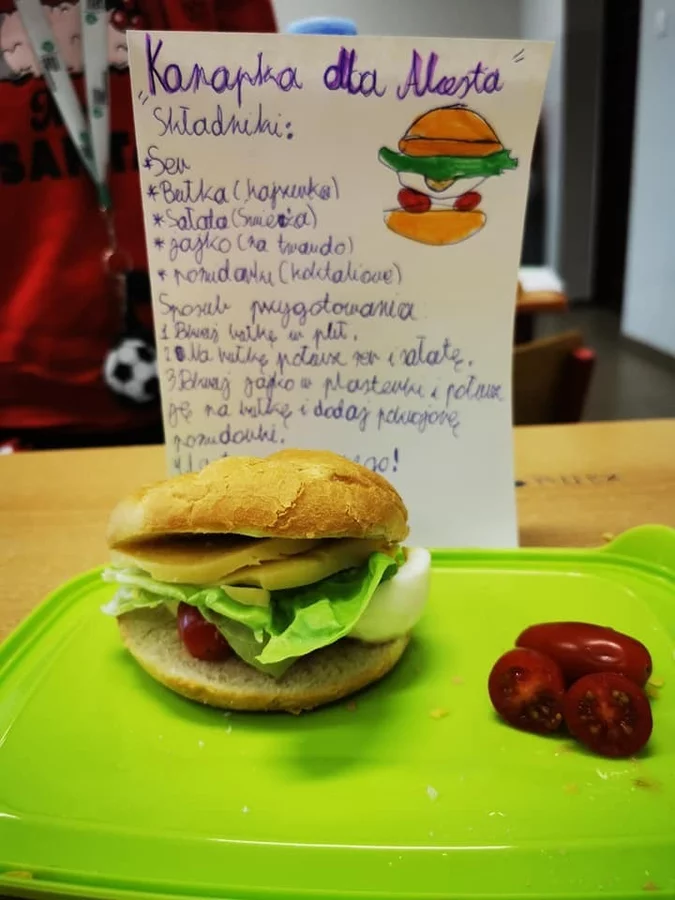 "Kanapka dla Alcesta"
Składniki:
*Ser
*Bułka (kajzerka)
*Sałata (świeża)
*jajko (na twardo)
*pomidorki (koktailowe)
Sposób przygotowania
1 Bkroj bułkę w pół.
2 Na bułkę połusz ser i sałatę.
3 Bkroj jajko w plasterki i połusz
ję na bułkę i dodaj pokrojone
pomidorki.